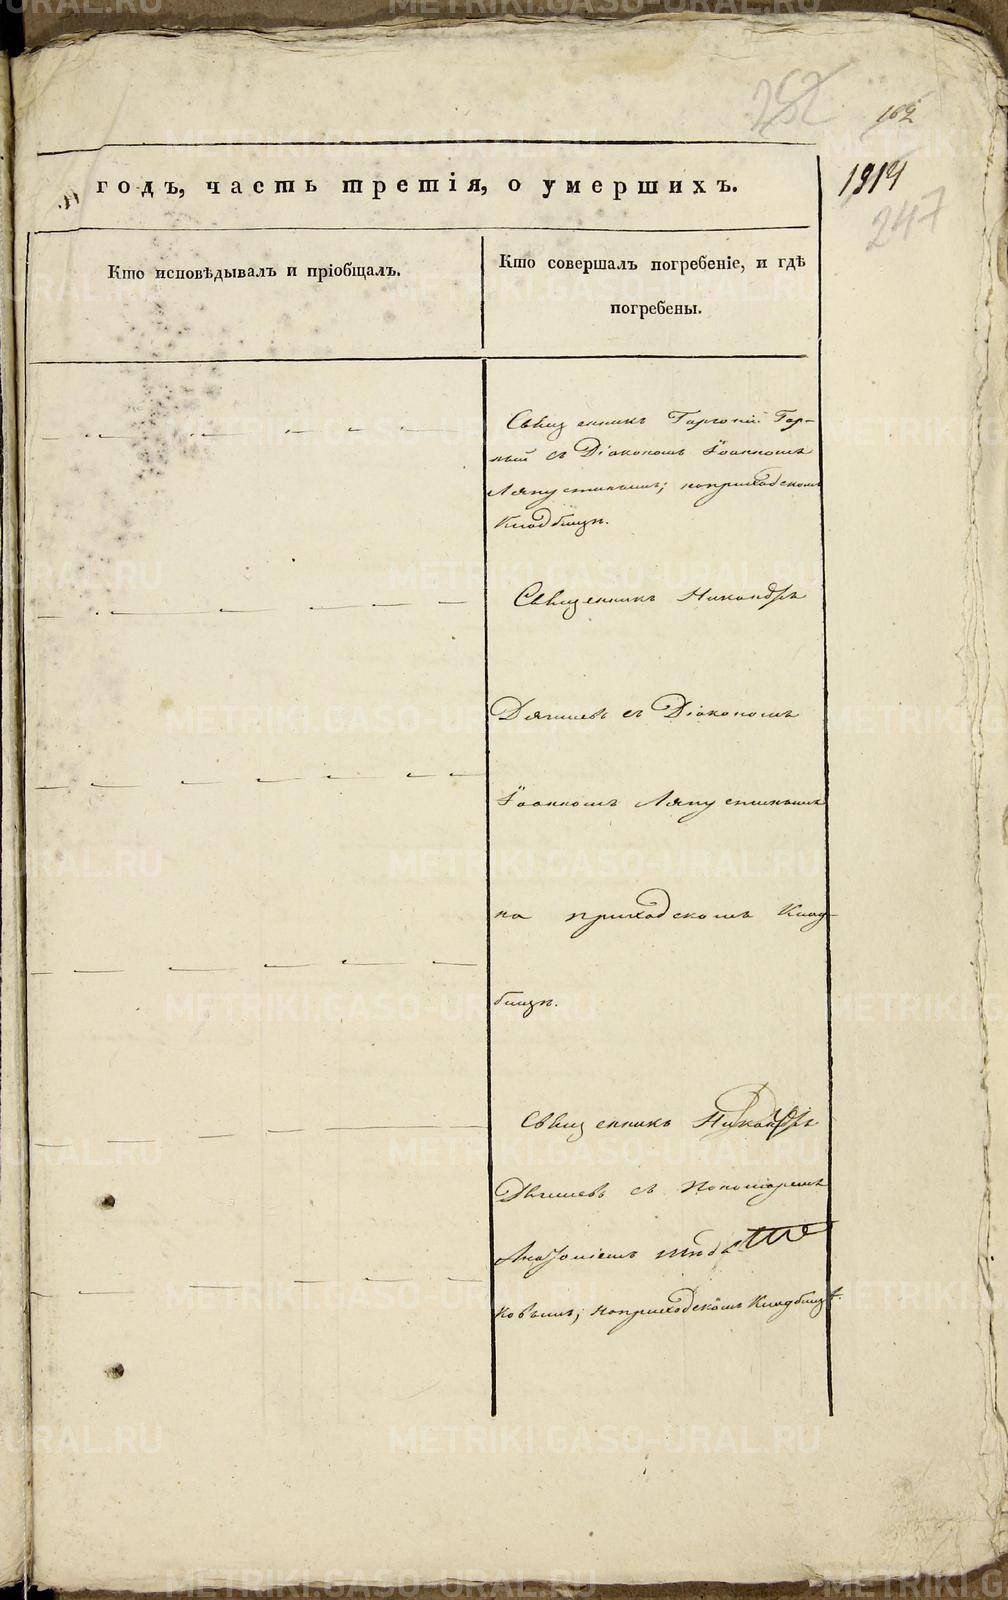 252
162
годъ, часть третія, о умершихъ.
1914
247
Кто исповѣдывалъ и пріобщалъ.
Кто совершалъ погребеніе, и гдѣ
погребены.
Священникъ Горгоній Гор-
ный съ Діакономъ Іоанномъ
Ляпустинымъ; на приходскомъ
Кладбищѣ.
Священникъ Никандръ
Дягилевъ съ Діакономъ
Іоанномъ Ляпустинымъ
на приходскомъ Клад-
бищѣ.
Священникъ Никандръ
Дягилевъ съ Пономаремъ
ковымъ; на приходскомъ Кладбищѣ.
METRIKI.GASO-URAL.RU